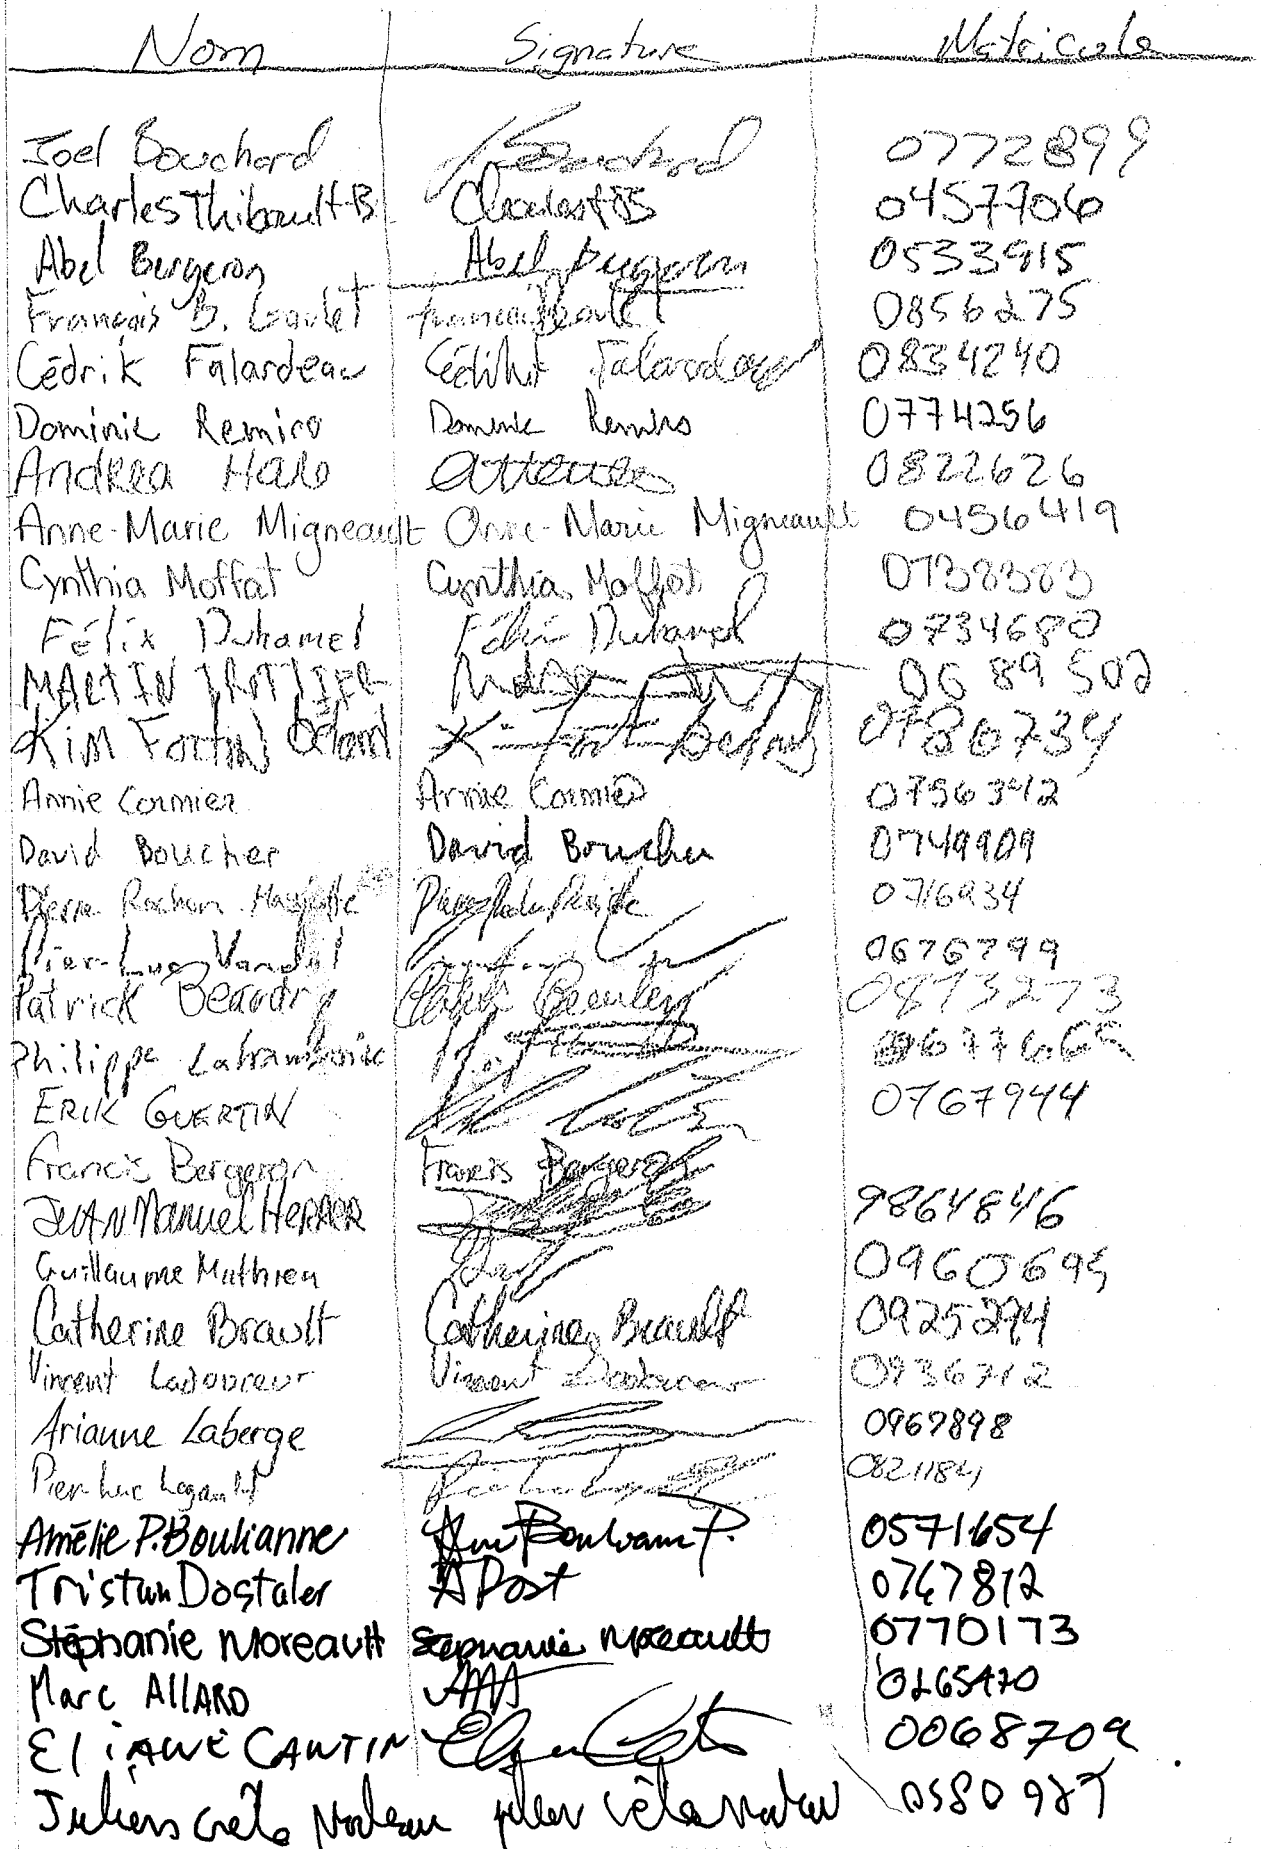 Nom Signature Matricule
Joel Bouchard Bouchard 0772899
Charles Thibault-B 0457706
Abel Bergeron Abel Bergeron 0533915
François B. Goulet 0856275
Cédrik Falardeau Cédrik Falardeau 0834240
Dominic Remiro Dominic Remiro 0774256
Andrea Halo 0822626
Anne-Marie Migneault Anne-Marie Migneault 0456419
Cynthia Moffat Cynthia Moffat 0738383
Félix Duhamel Félix Duhamel 0734680
MARTIN TROTTIER 0689502
Kim Fortin 0780734
Annie Cormier Annie Cormier 0756342
David Boucher David Boucher 0749909
Pierre Rochon 0716934
Pier-Luc Vandal 0676799
Patrick Beaudry 0873273
Philippe
ERIK GUERTIN 0767944
Francis Bergeron Francis Bergeron
JUAN Manuel HERRER 9864846
Guillaume Mathieu
Catherine Brault Catherine Brault 0925294
Vincent Ladouceur Vincent 0936712
Arianne Laberge 0967898
Pier-Luc Legault 0821184
Amélie P.Boulianne 0571654
Tristan Dostaler 0767812
Stéphanie Moreault Stéphanie Moreault 0770173
Marc AllARD
EliANE CANTIN 0068709
Julien Crête Nadeau